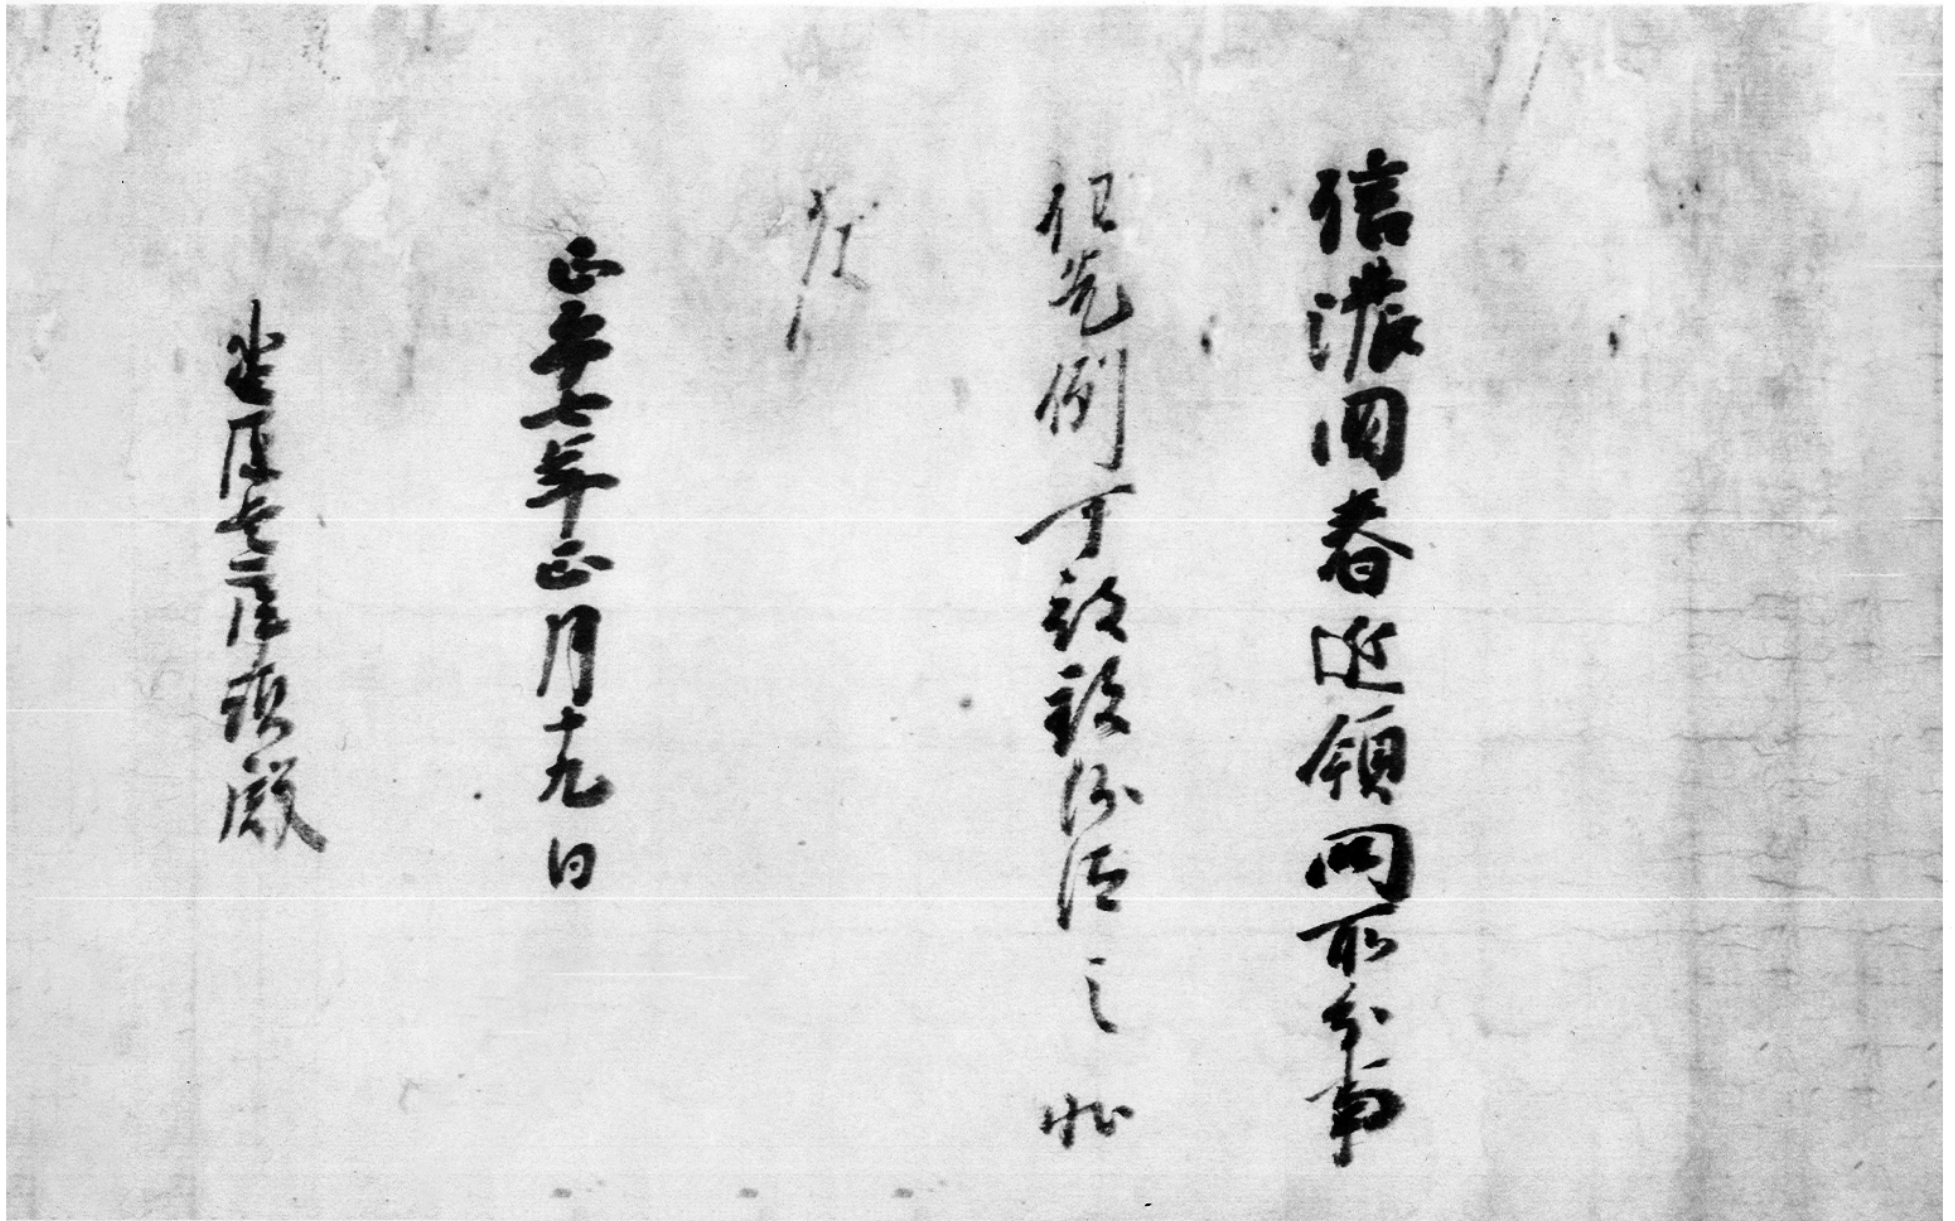 信濃国春近領闕所分事
任先例可致沙汰之状
如件
正平七年正月十九日
小笠原兵庫頭殿